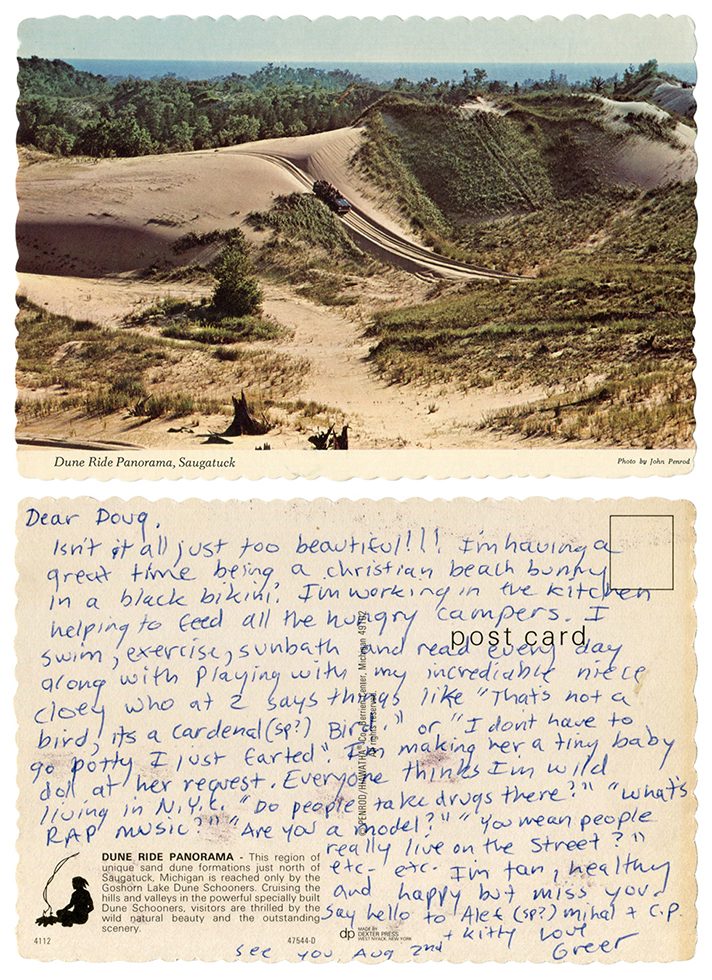 Dune Ride Panorama, Saugatuck
Photo by John Penrod
Dear Doug,
Isn't it all just too beautiful!!! I'm having a
great time being a christian beach bunny
in a black bikini. I'm working in the kitchen
helping to feed all the hungry campers. I
swim, exercise, sunbath and read every day
along with playing with my incrediable niece
cloey who at 2 says things like "That's not a
bird, its a cardenal (sp?) Bird." or "I dont have to
go potty I just farted". I'm making her a tiny baby
doll at her request. Everyone thinks I'm wild
living in N.Y.C. "Do people take drugs there?" "what's
RAP music?" "Are you a model?" "You mean people
really live on the street?"
etc. etc. I'm tan, healthy
and happy but miss you.
Say hello to Alex (sp?) mihal + c.p.
+ kitty Love
see you, Aug 2nd Greer
post card
© PENROD/HIAWATHA Co., Berrien Center, Michigan 49102
rights reserved.
DUNE RIDE PANORAMA - This region of
unique sand dune formations just north of
Saugatuck, Michigan is reached only by the
Goshorn Lake Dune Schooners. Cruising the
hills and valleys in the powerful specially built
Dune Schooners, visitors are thrilled by the
wild natural beauty and the outstanding
scenery.
4112
47544-D
dp
MADE BY
DEXTER PRESS
WEST NYACK, NEW YORK